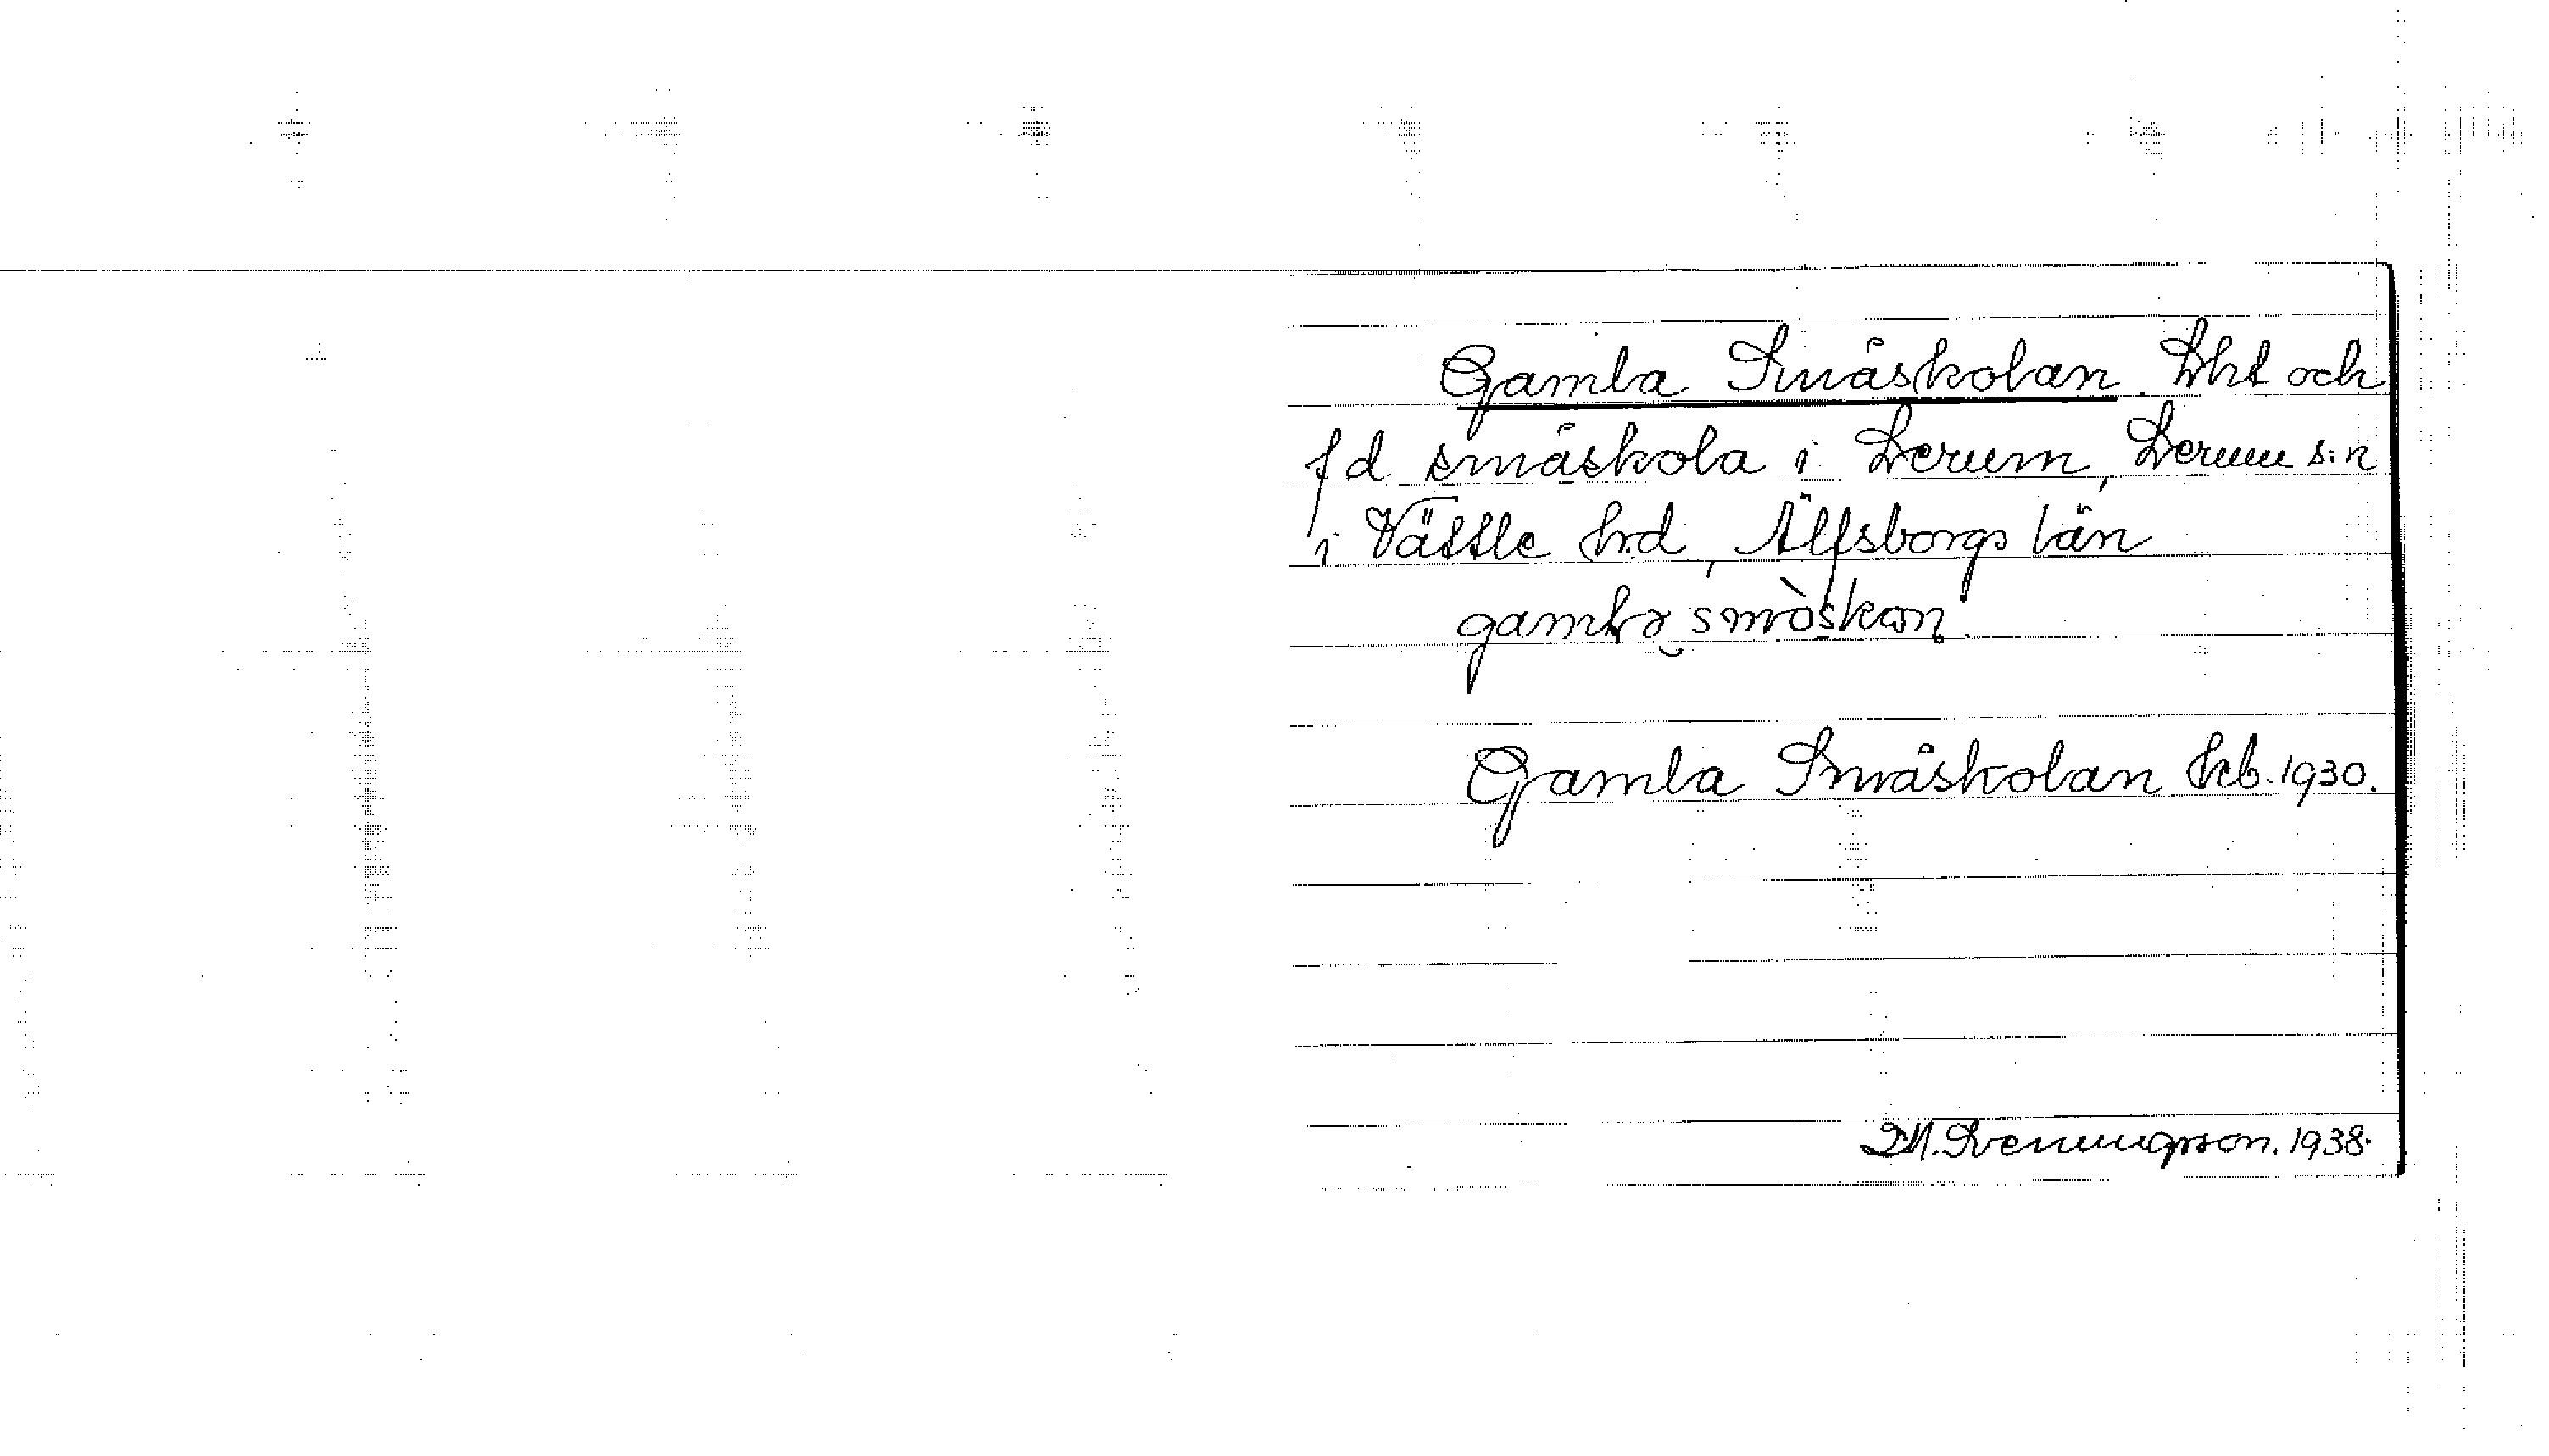 Gamla Småskolan. Lht och
f d småskola i Lerum, Lerum s:n
i Vättle h:d, Älfsborgs län
gamla småskon.
Gamla Småskolan hcb. 1930.
D.N. Svenningsson. 1938.